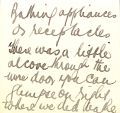 Bathing appliances
or receptacles
There was a little
alcove through the
wire door you can
glimpse on right
where we did take